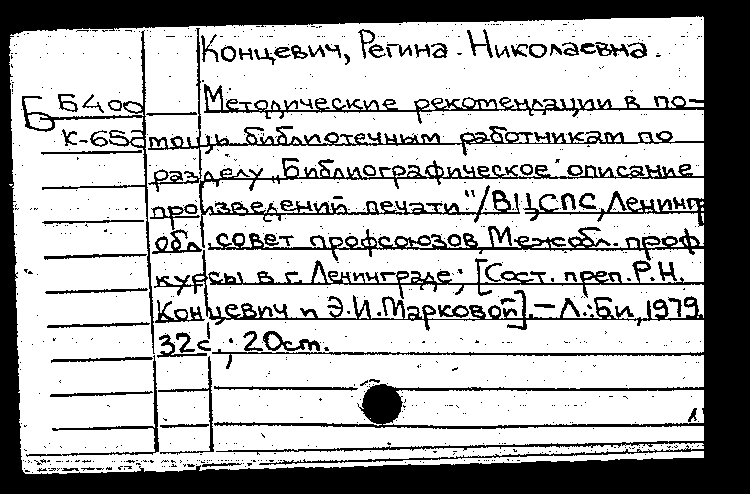 Концевич, Регина. Николаевна.
Б Б400 Методические рекомендации в по-
К-652 мощь библиотечным работникам по
разделу „Библиографическое описание
произведений печати."/ВЦСПС, Ленингр
обл. совет профсоюзов, Межобл. проф
курсы в г. Ленинграде; [Сост. преп. Р.Н.
Концевич и Э.И.Марковой].—Л.:Би, 1979.
32с.; 20см.